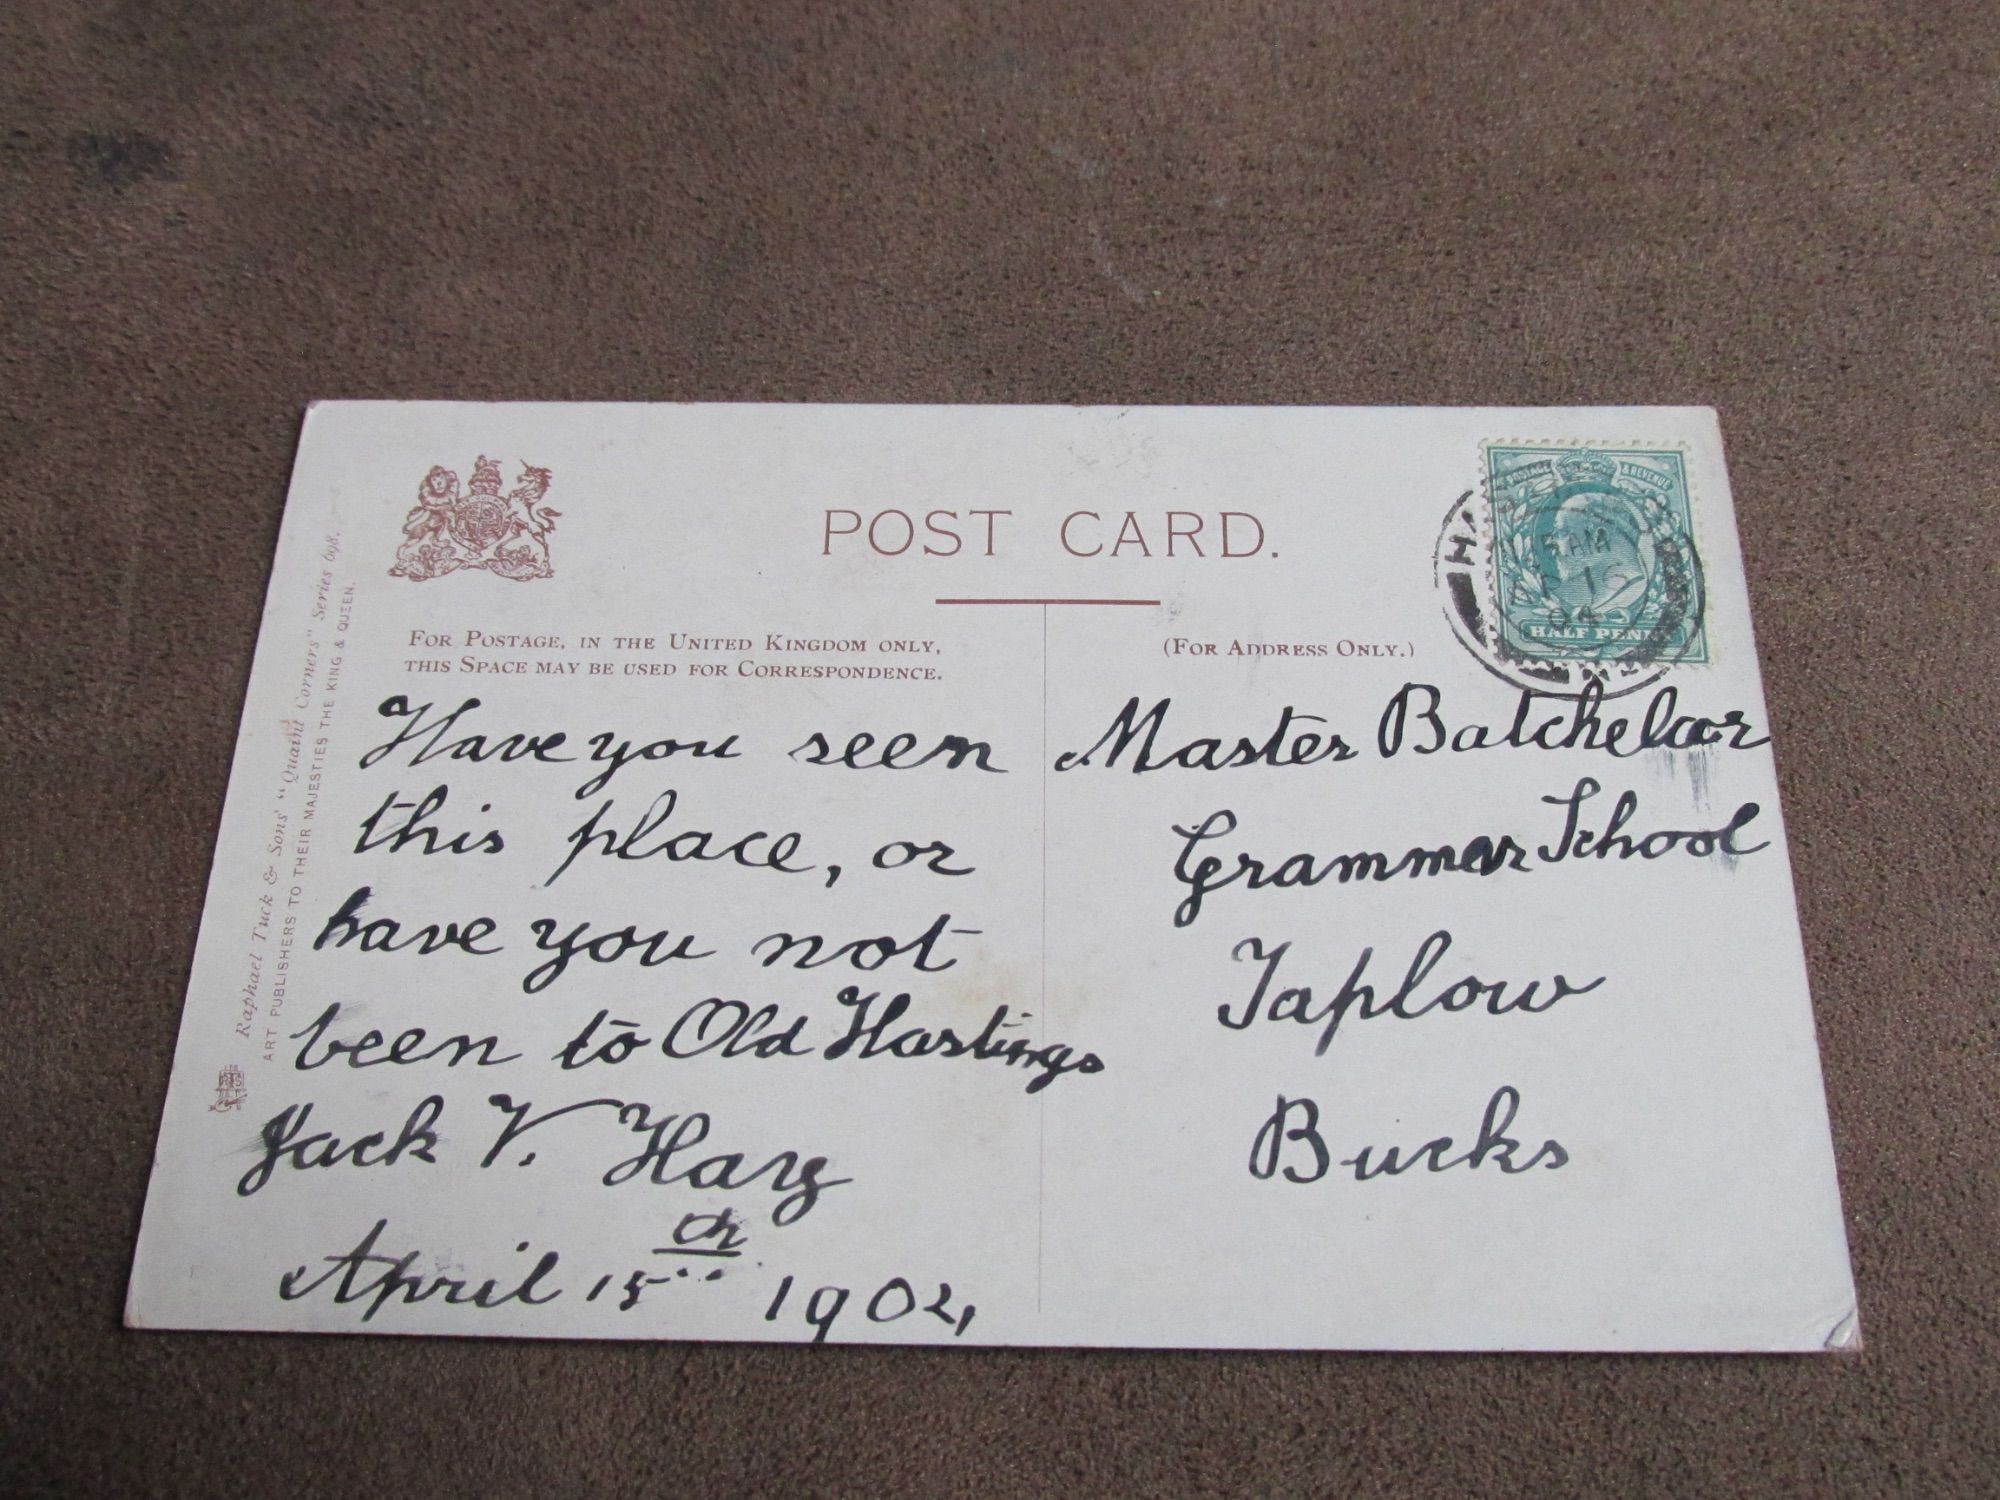 POST CARD.
FOR POSTAGE, IN THE UNITED KINGDOM ONLY,
THIS SPACE MAY BE USED FOR CORRESPONDENCE.
(FOR ADDRESS ONLY.)
Raphael Tuck & Sons' "Quaint Corners" Series 698.
ART PUBLISHERS TO THEIR MAJESTIES THE KING & QUEEN.
POSTAGE & REVENUE
HALF PENNY
5 AM
04
Have you seen
this place, or
have you not
been to Old Hastings
Jack V.
April 15th 1904,
Master Batchelor
Grammar School
Taplow
Bucks